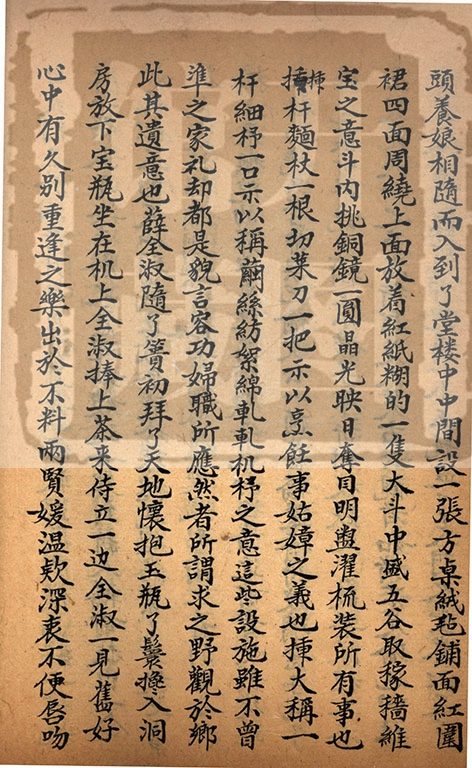 頭養娘相隨而入到了堂楼中中間設一張方桌絨毡鋪面紅圍
裙四面周繞上面放着紅紙糊的一隻大斗中盛五谷取稼穡維
宝之意斗内挑銅鏡一圓晶光映日奪目明盥濯梳裝所有事也
挿杆麵杖一根切菜刀一把示以烹飪事姑嫜之義也挿大稱一
杆細杼一口示以稱繭絲紡絮綿軋軋机杼之意這些設施雖不曾
準之家礼却都是貌言容功婦職所應然者所謂求之野觀於鄉
此其遺意也薛全淑隨了簣初拜了天地懷抱玉瓶丫鬟攙入洞
房放下宝瓶坐在机上全淑捧上茶来侍立一边全淑一見舊好
心中有久别重逢之樂出於不料兩賢媛温款深衷不便唇吻